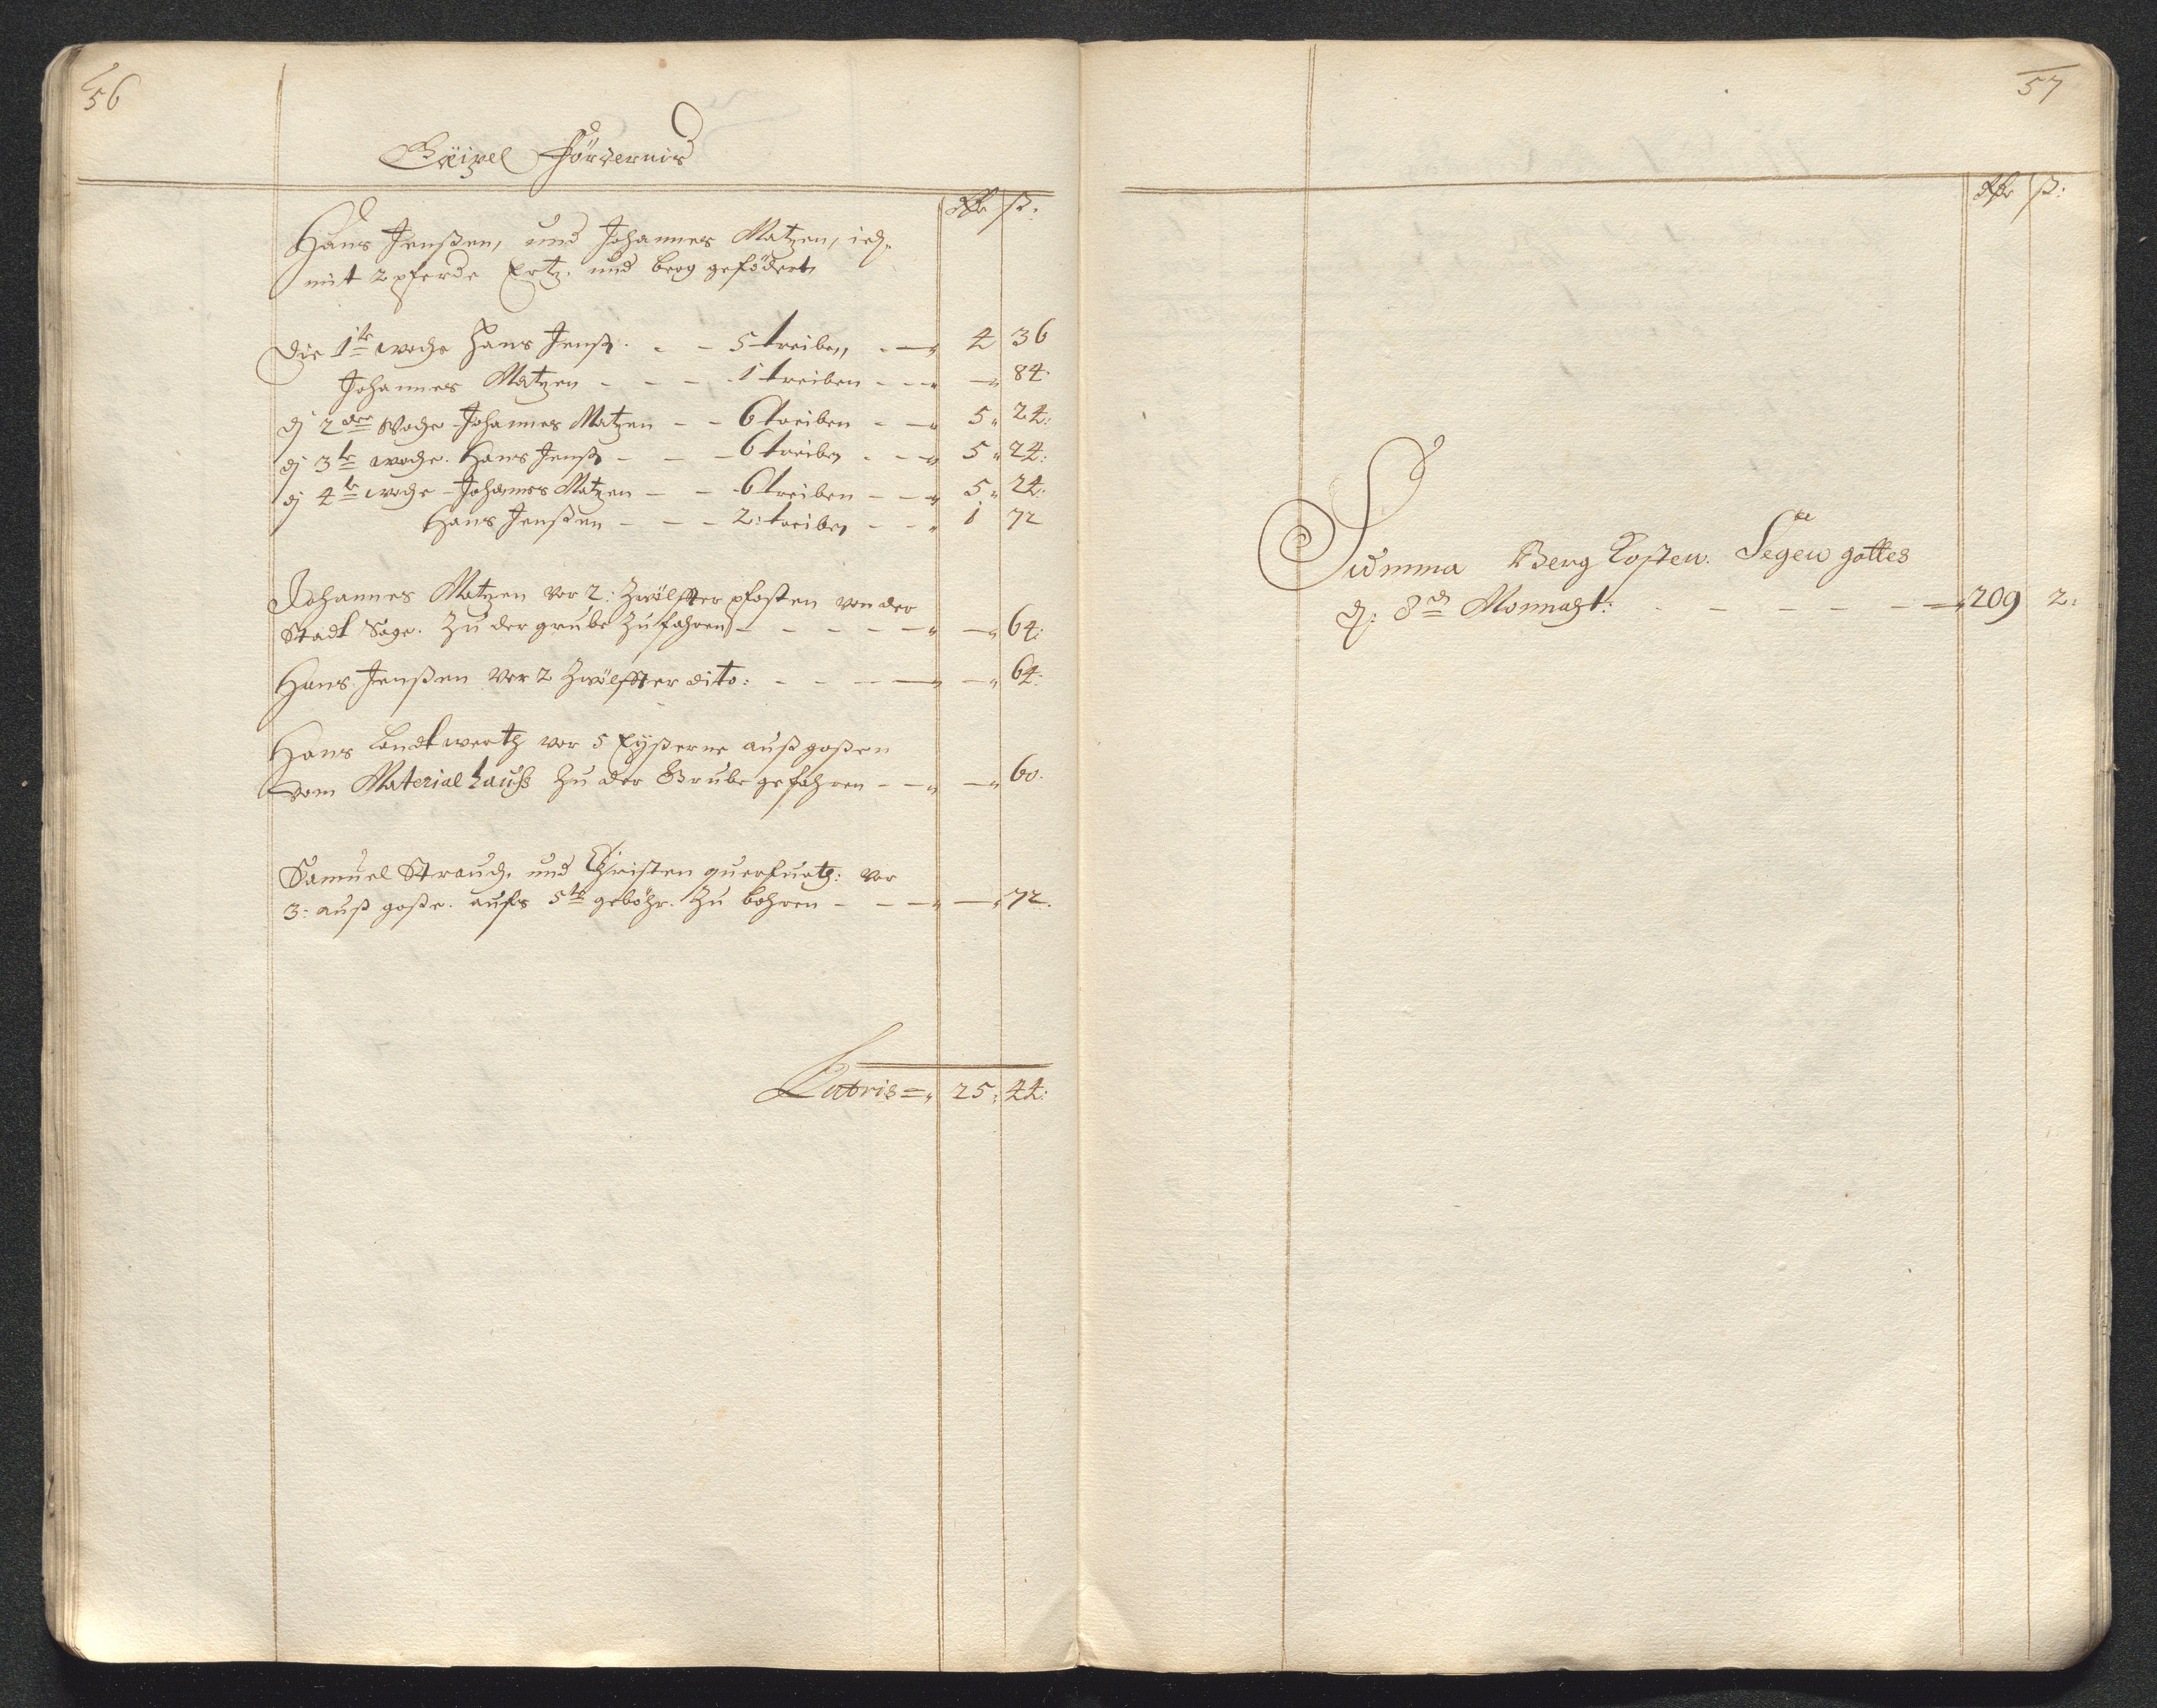 56
Göipel Förderniß
Rdr ß:
Hans Jenßen, und Johannes Matzen, ied.
mit 2 pferde Ertz. und berg gefödert
Die 1te woche Hans Jenß. - - 5 treiben - — 4 36
Johannes Matzen - - - 1 treiben - - - — 84:
dj 2der Woche Johannes Matzen - - 6 treiben - — 5 24:
dj 3te woche. Hans Jenß - - - 6 treiben - - - 5 24:
dj 4te woche - Johannes Matzen - - 6 treiben - - - 5 24:
Hans Jenßen - - - 2: treiben - - - 1 72
Johannes Matzen vor 2: Zwölffter pfosten von der
Stadt Sage. Zu der grube Zu fahren - - - - - — 64:
Hans Jenßen vor 2 Zwölffter dito: - - - - — 64:
Hans Landtwerth vor 5 Eyßerne außgoßen
vom Material hauß Zu der Grube gefahren - - - 60.
Samuel Strauch. und Christen querfurth: vor
3: auß goße. aufs 5te geböhr. Zu bohren - - - — 72.
Latoris = 25: 44:
57
Rdr ß:
Summa Berg Kosten. Segen gottes
dj: 8d Monnaht: - - - - - - 209 2: